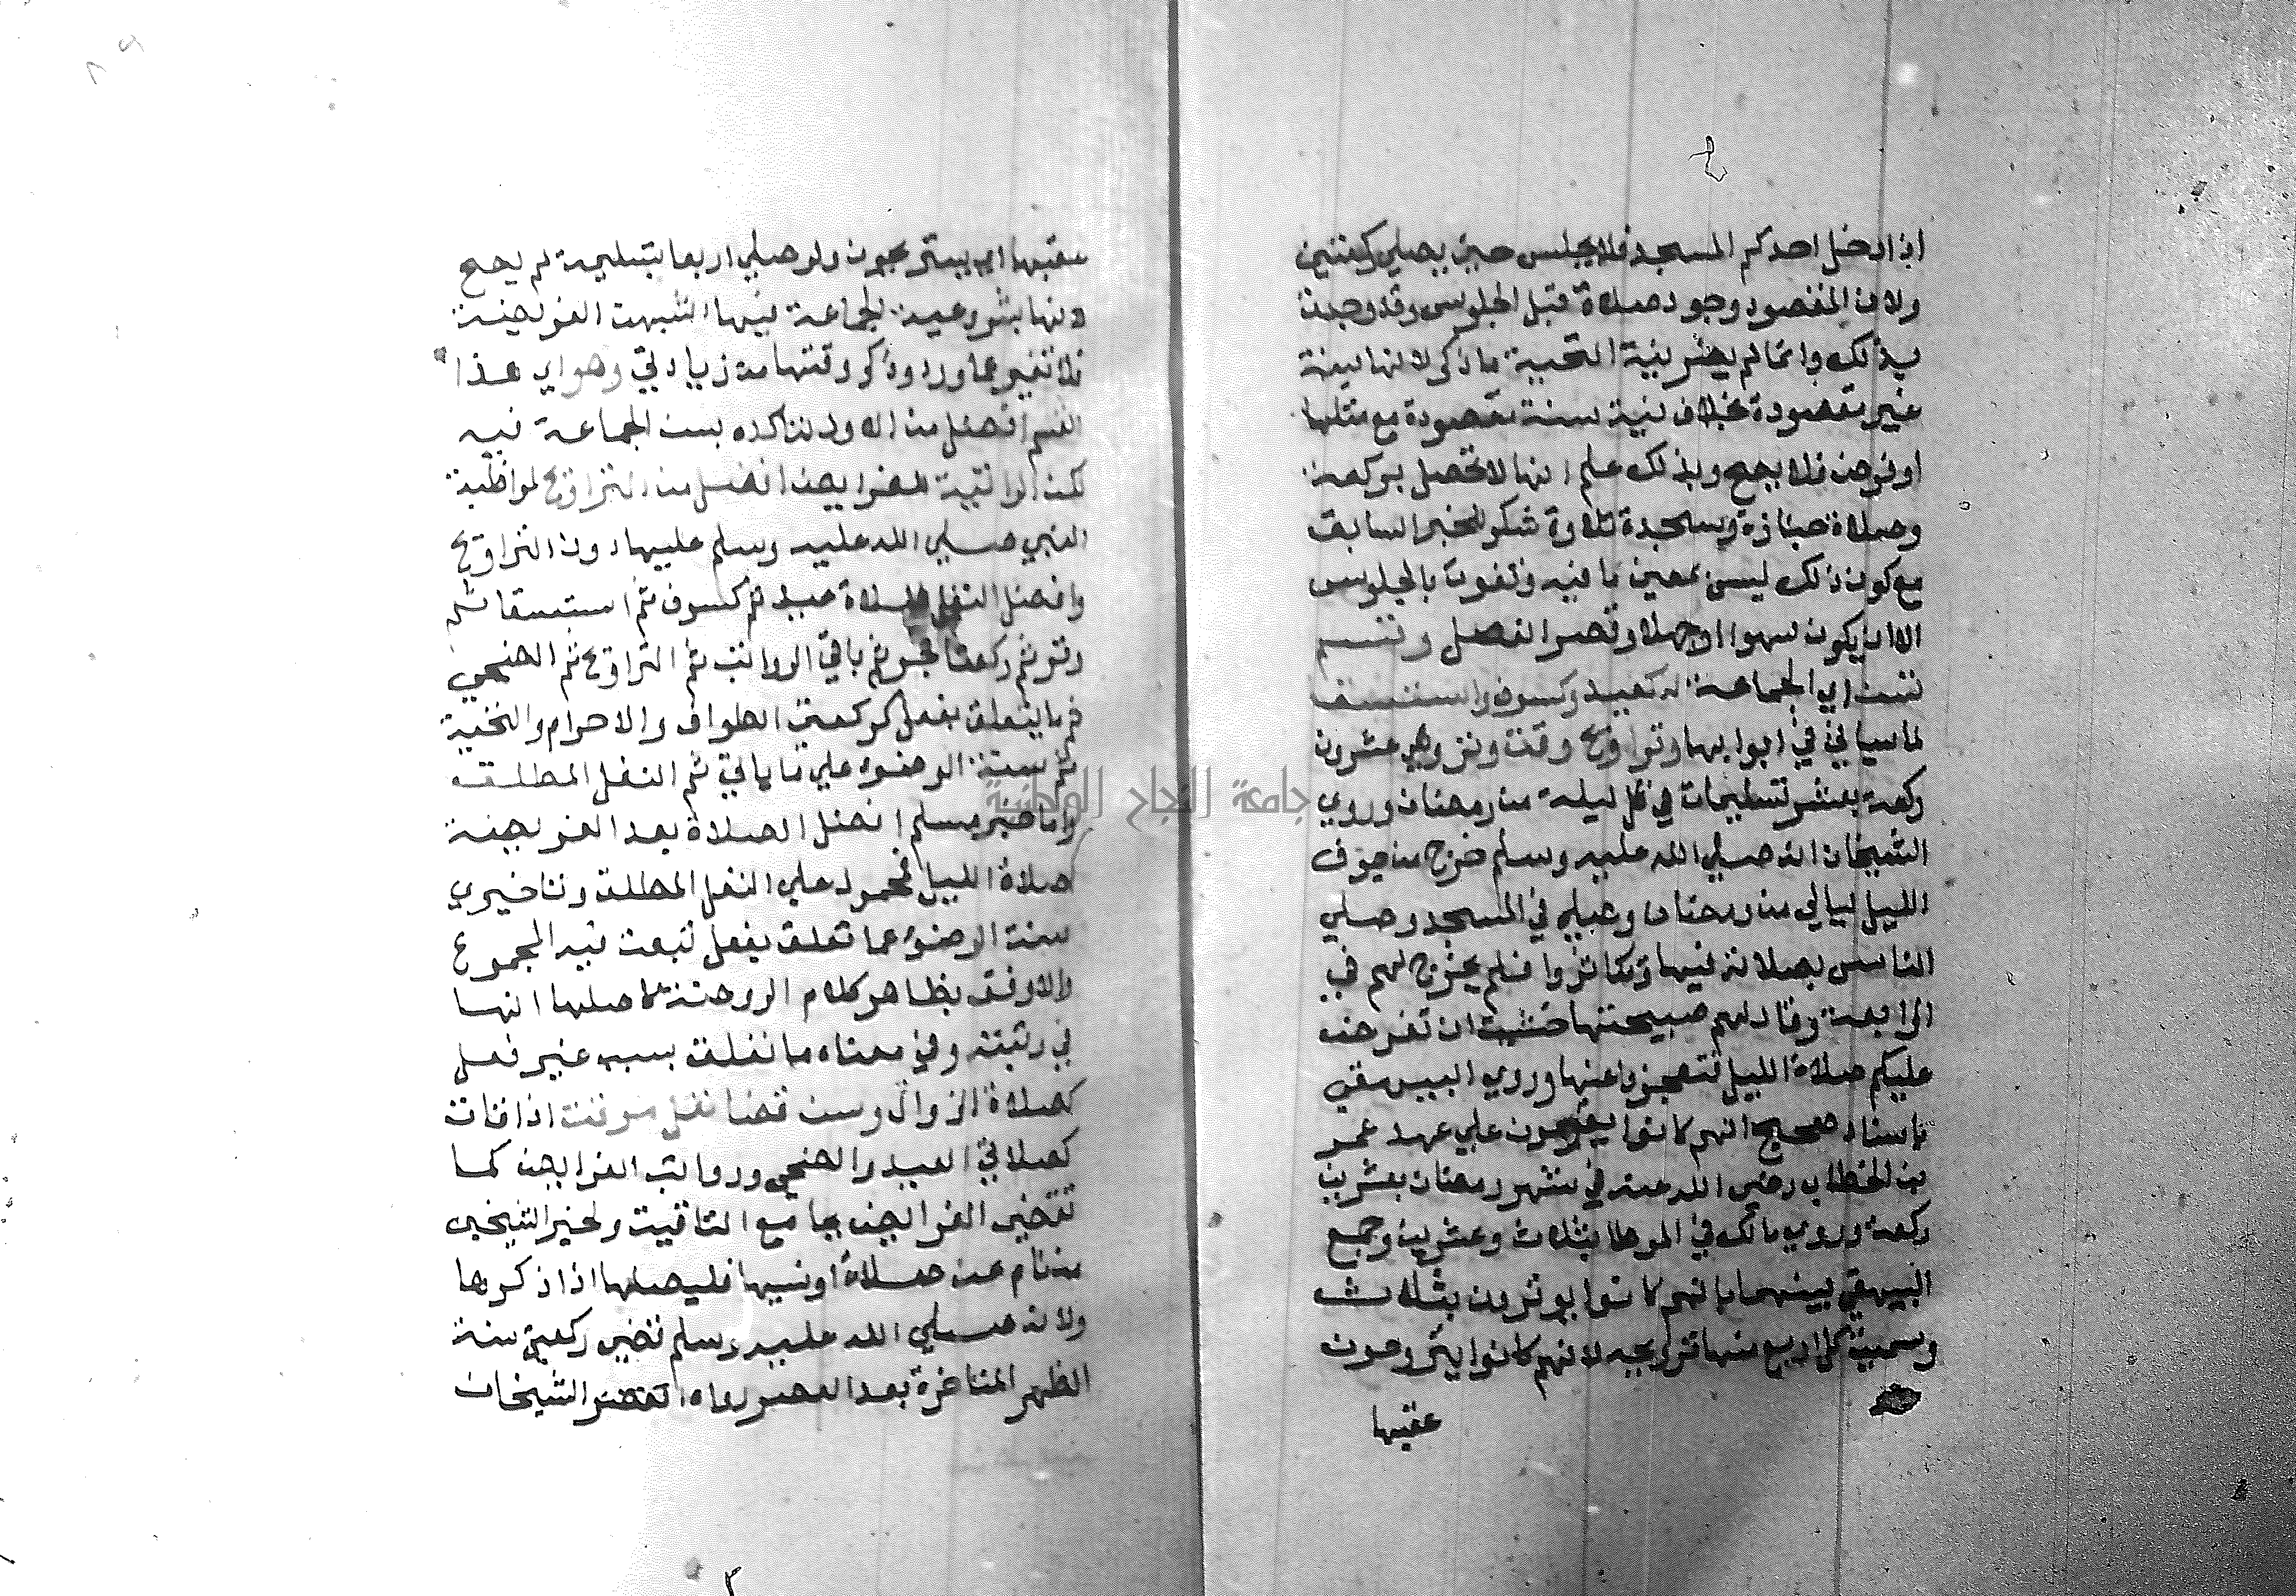 اذا دخل احدكم المسجد فلا يجلس حتي يصلي ركعتين
ولان المقصود وجود صلاة قبل الجلوس وقد وجدت
بذلك وانما لم يضر بنية التحية ما ذكر لانها سنة
غير مقصودة بخلاف نية سنة مقصودة مع مثلها
او فرض فلا يصح وبذلك علم انها لا تحصل بركعة
وصلاة جنازة وسجدة تلاوة شكر للخبر السابق
مع كون ذلك ليس بمعني ما فيه وتفوت بالجلوس
الا ان يكون سهوا او جهلا وقصر الفصل وقسم
تسن اي الجماعة له كعيد وكسوف واستسقا
لما سياتي في ابوابها وتراويح وقت وتر وهي عشرون
ركعة بعشر تسليمات في كل ليلة من رمضان وروي
الشيخان انه صلي الله عليه وسلم خرج من جوف
الليل ليالي من رمضان وصلي في المسجد وصلي
الناس بصلاته فيها وتكاثروا فلم يخرج لهم في
الرابعة وقال لهم صبيحتها خشيت ان تفرض
عليكم صلاة الليل فتعجزوا عنها وروي البيهقي
باسناد صحيح انهم كانوا يقومون علي عهد عمر
بن الخطاب رضي الله عنه في شهر رمضان بعشرين
ركعة وروي مالك في الموطا بثلاث وعشرين وجمع
البيهقي بينهما بانهم كانوا يوترون بثلاث
وسميت كل اربع منها ترويحه لانهم كانوا يتروحون
عقبها
عقبها اي يستريحون ولو صلي اربعا بتسليمة لم يصح
لانها بشروعية الجماعة فيها اشبهت الفريضة
فلا تغير عما ورد وذكر وقتها من زيادتي وهو اي هذا
القسم افضل من الاول لتاكده بسن الجماعة فيه
لكن الراتبة للفرايض افضل من التراويح لمواظبة
النبي صلي الله عليه وسلم عليها دون التراويح
وافضل النفل صلاة عيد ثم كسوف ثم استسقا ثم
وتر ثم ركعتا فجر ثم باقي الرواتب ثم التراويح ثم الضحي
ثم ما يتعلق بفعل كركعتي الطواف والاحرام والتحية
ثم سنة الوضوء علي ما ياتي ثم النفل المطلق
واما خبر مسلم افضل الصلاة بعد الفريضة
صلاة الليل فمحمول علي النفل المطلق وتاخيري
سنة الوضوء عما تعلق بفعل تبعت فيه المجموع
والاوفق بظاهر كلام الروضة كاصلها انها
في رتبته وفي معناه ما تعلق بسبب غير فعل
كصلاة الزوال وسن قضا نفل موقت اذا فات
كصلاتي العيد والضحي ورواتب الفرايض كما
تقضي الفرايض بجامع التاقيت ولخبر الشيخين
من نام عن صلاة او نسيها فليصلها اذا ذكرها
ولانه صلي الله عليه وسلم قضي ركعتي سنة
الظهر المتاخرة بعد العصر رواه الشيخان
جامعة النجاح الوطنية